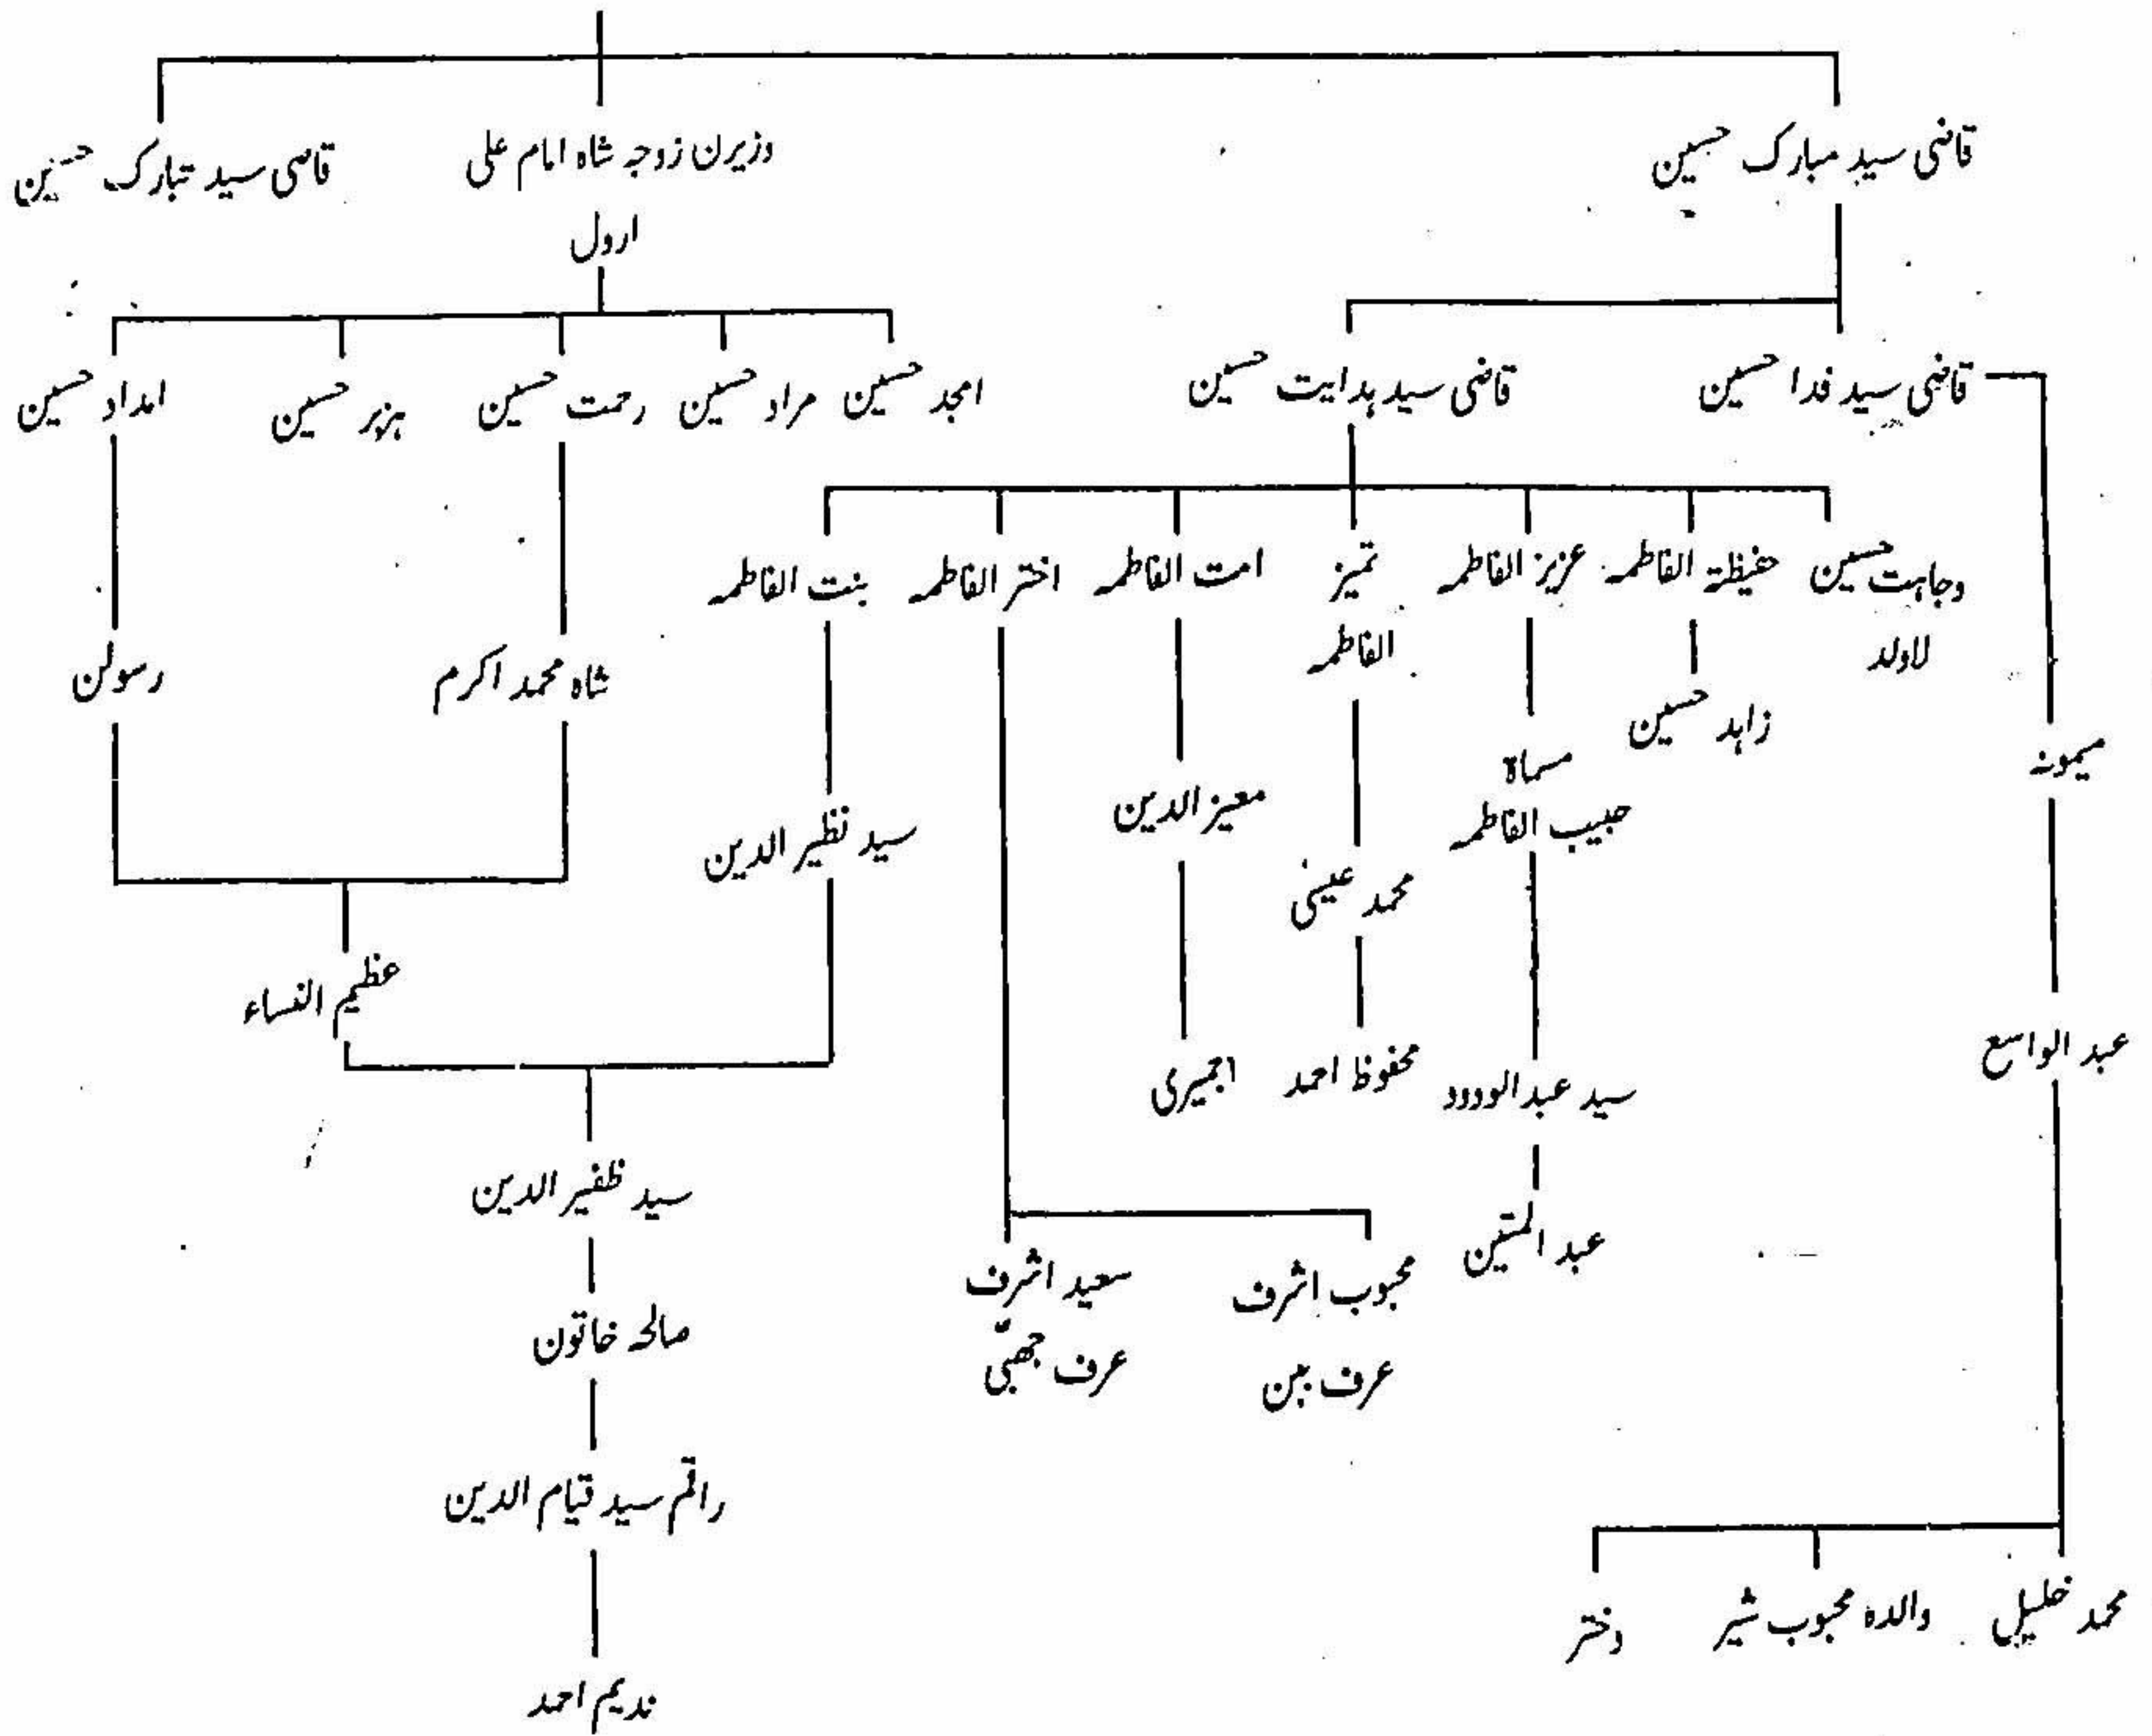 قاضی سید مبارک حسین
وزیرن زوجہ شاہ امام علی
ارول
قاضی سید تبارک حسین
قاضی سید فدا حسین
قاضی سید ہدایت حسین
امجد حسین
مراد حسین
رحمت حسین
ہزبر حسین
امداد حسین
وجاہت حسین
لاولد
حفیظۃ الفاطمہ
عزیز الفاطمہ
تمیز
الفاطمہ
امت الفاطمہ
اختر الفاطمہ
بنت الفاطمہ
شاہ محمد اکرم
رسولن
زاہد حسین
میمونہ
مسماۃ
حبیب الفاطمہ
معیز الدین
سید نظیر الدین
محمد عیسٰی
عظیم النساء
عبد الواسع
سید عبد الودود
محفوظ احمد
اجمیری
سید ظفیر الدین
عبد المتین
محبوب اشرف
عرف ببن
سعید اشرف
عرف چھبّی
صالحہ خاتون
راقم سید قیام الدین
محمد خلیل
والدہ محبوب شیر
دختر
ندیم احمد